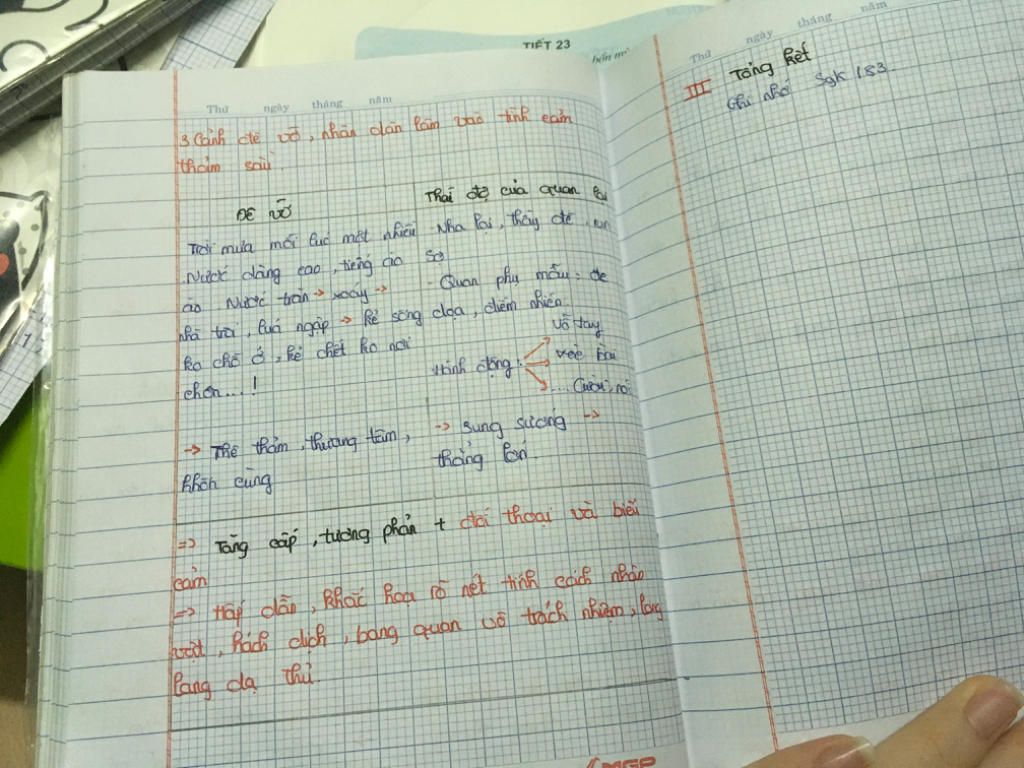 TIẾT 23
Thứ ngày tháng năm
3 Cảnh đê vỡ, nhân dân lâm vào tình cảm
thảm sầu
Đê vỡ
Trời mưa mỗi lúc một nhiều
Nước dâng cao, tiếng ào
ào Nước tràn → xoáy →
nhà trôi, lúa ngập → kẻ sống
ko chỗ ở, kẻ chết ko nơi
chôn...!
→ Thê thảm, thương tâm,
khốn cùng
Thái độ của quan lại
- Nha lại, thầy đề, run
sợ
- Quan phụ mẫu: đe
dọa, điềm nhiên
Hành động:
vỗ tay
Cười, nói
→ Sung sướng →
thắng lớn.
=> Tăng cấp, tương phản + đối thoại và biểu
cảm
=> Hấp dẫn, khắc họa rõ nét tính cách nhân
vật, hách dịch, bàng quan vô trách nhiệm, lòng
lang dạ thú
MGP
Thứ ngày tháng năm
III Tổng kết
Ghi nhớ Sgk 183